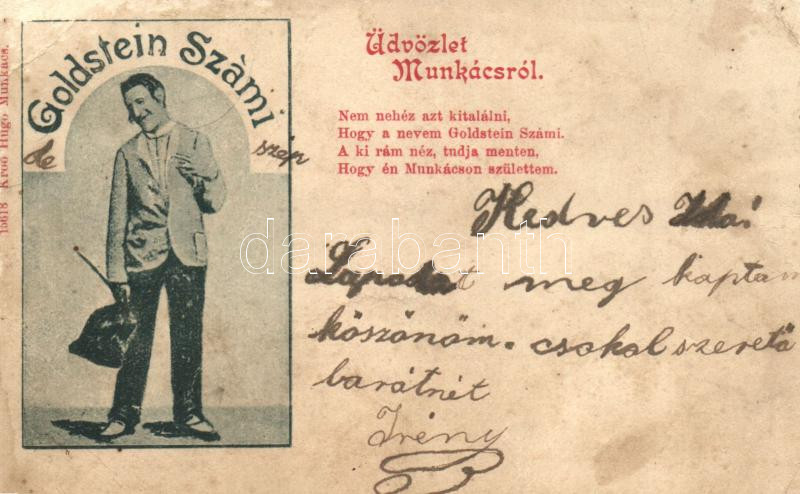 Goldstein Számi
de szép
15618 Kroó Hugó Munkács.
Üdvözlet
Munkácsról.
Nem nehéz azt kitalálni,
Hogy a nevem Goldstein Számi.
A ki rám néz, tudja menten,
Hogy én Munkácson születtem.
Hedves Ida!
Lapodat meg kaptam
köszönöm. csokol szerető
barátnét
Irény
darabanth